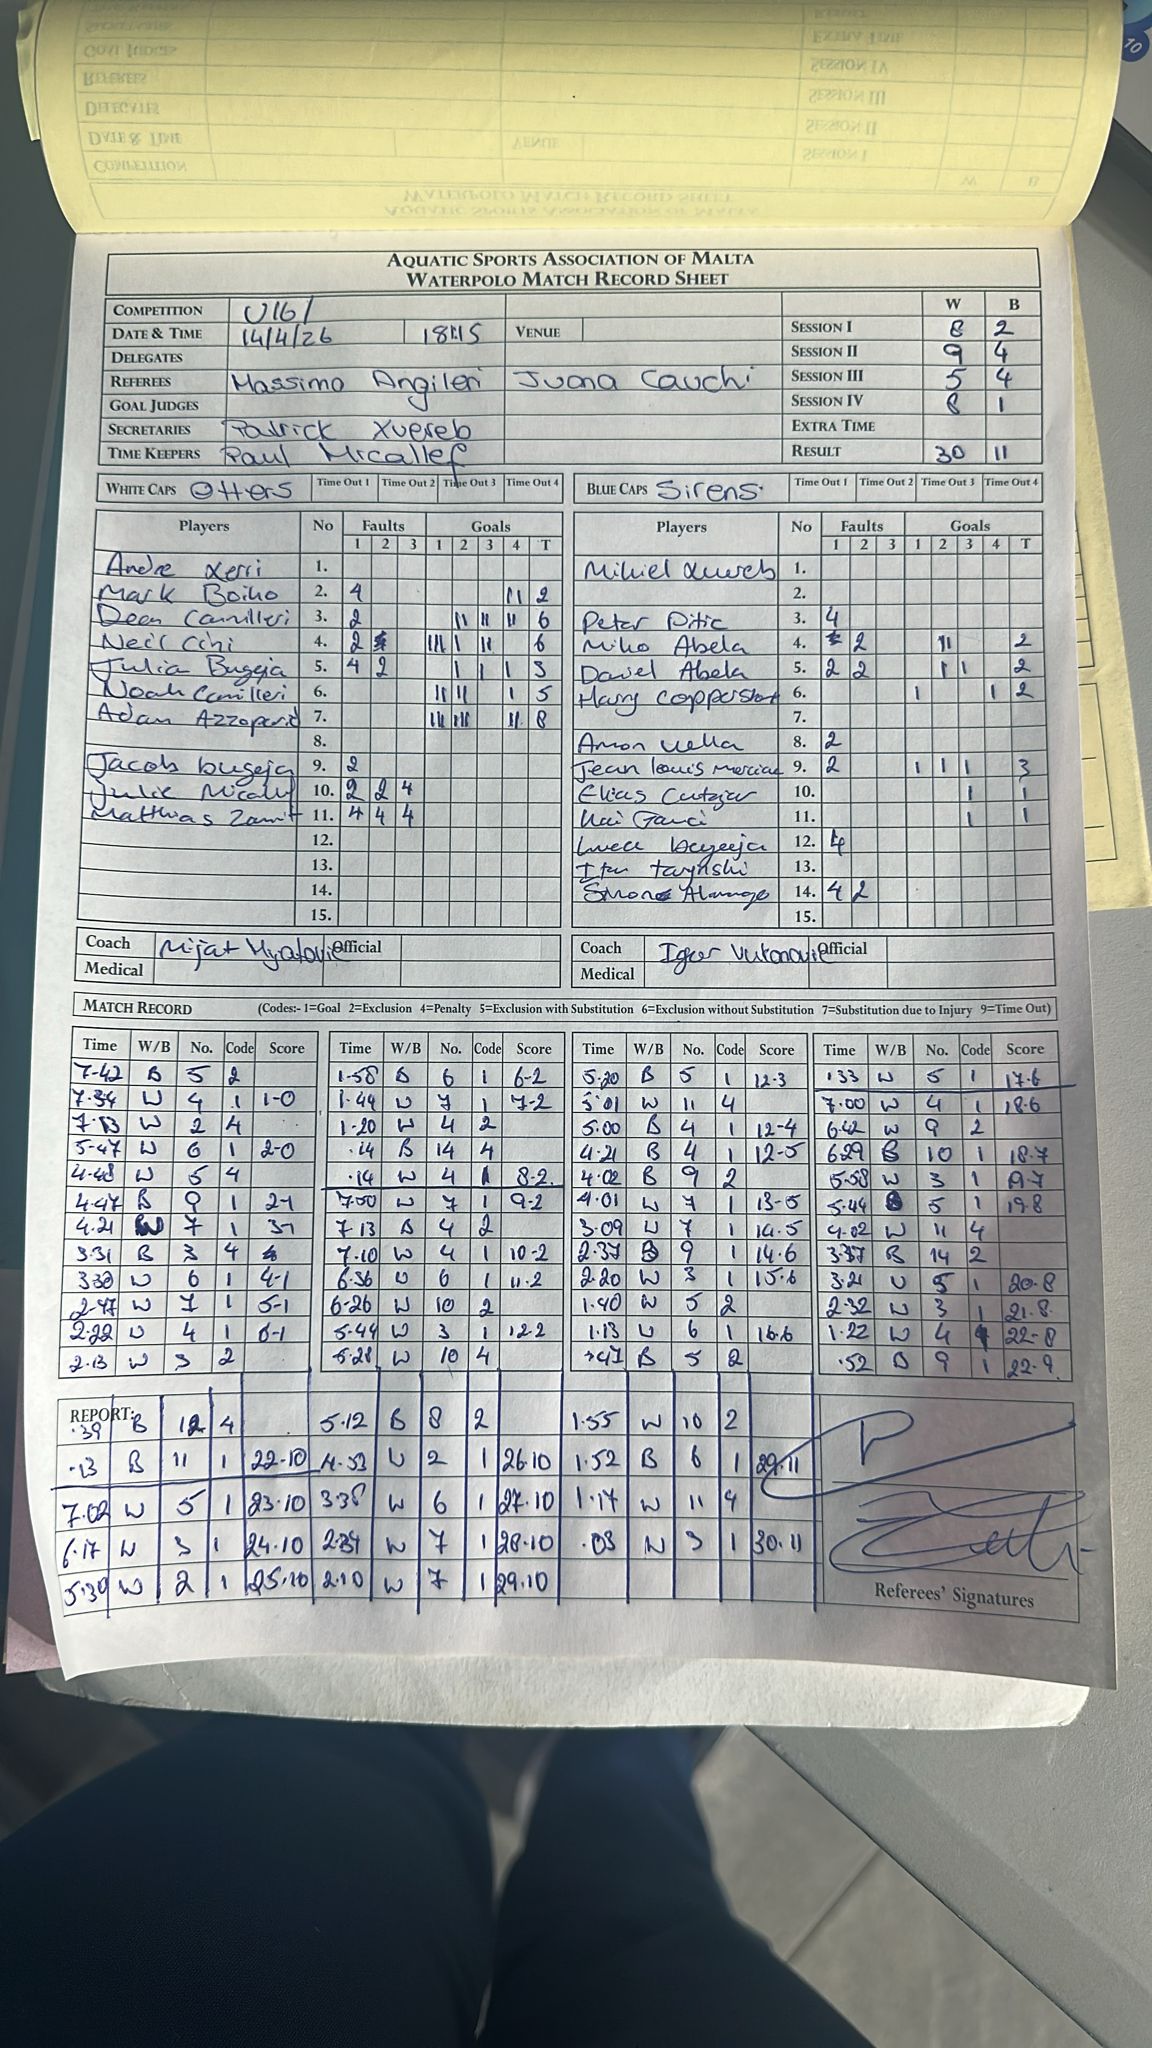 AQUATIC SPORTS ASSOCIATION OF MALTA
WATERPOLO MATCH RECORD SHEET
COMPETITION U16/ W B
DATE & TIME 14/4/26 18:15 VENUE SESSION I 8 2
DELEGATES SESSION II 9 4
REFEREES Massimo Angileri Juana Cauchi SESSION III 5 4
GOAL JUDGES SESSION IV 8 1
SECRETARIES Patrick Xuereb EXTRA TIME
TIME KEEPERS Paul Micallef RESULT 30 11
WHITE CAPS Otters Time Out 1 Time Out 2 Time Out 3 Time Out 4 BLUE CAPS Sirens Time Out 1 Time Out 2 Time Out 3 Time Out 4
Players No Faults Goals Players No Faults Goals
1 2 3 1 2 3 4 T 1 2 3 1 2 3 4 T
Andre Xerri 1. Mikiel Xuereb 1.
Mark Boiko 2. 4 II 2 2.
Dean Camilleri 3. 2 II II II 6 Peter Pitic 3. 4
Neil Cini 4. 2 III I II 6 Miko Abela 4. 2 II 2
Julia Bugeja 5. 4 2 I I I 3 David Abela 5. 2 2 I I 2
Noah Camilleri 6. II II I 5 Harry 6. I I 2
Adam Azzopardi 7. III III II 8 7.
8. Amon Vella 8. 2
Jacob Bugeja 9. 2 Jean louis 9. 2 I I I 3
10. 2 2 4 Elias 10. I 1
Matthias 11. 4 4 4 11. I 1
12. 12. 4
13. 13.
14. 14. 4 2
15. 15.
Coach Official Coach Igor Official
Medical Medical
MATCH RECORD (Codes:- 1=Goal 2=Exclusion 4=Penalty 5=Exclusion with Substitution 6=Exclusion without Substitution 7=Substitution due to Injury 9=Time Out)
Time W/B No. Code Score Time W/B No. Code Score Time W/B No. Code Score Time W/B No. Code Score
7-42 B 5 2 1-58 B 6 1 6-2 5.20 B 5 1 12-3 .33 W 5 1 17.6
7.34 W 4 1 1-0 1.44 W 7 1 7-2 5.01 W 11 4 7.00 W 4 1 18.6
W 2 4 1.20 W 4 2 5.00 B 4 1 12-4 6.42 W 9 2
5-47 W 6 1 2-0 .14 B 14 4 4.21 B 4 1 12-5 6.29 B 10 1 18.7
4.48 W 5 4 .14 W 4 1 8-2 4.02 B 9 2 5.58 W 3 1 19-7
4.47 B 9 1 2-1 7.50 W 7 1 9-2 4.01 W 7 1 13-5 5.44 B 5 1 19.8
4.21 W 7 1 3-1 7.13 B 4 2 3.09 W 7 1 14.5 4.02 W 11 4
3.31 B 3 4 7.10 W 4 1 10-2 2.37 B 9 1 14.6 3.37 B 14 2
W 6 1 4-1 6.36 W 6 1 11.2 2.20 W 3 1 15.6 3.21 W 5 1 20.8
2-47 W 7 1 5-1 6-26 W 10 2 1.40 W 5 2 2.32 W 3 1 21.8
2.22 W 4 1 6-1 5.44 W 3 1 12.2 1.13 W 6 1 16.6 1.22 W 4 1 22-8
2.13 W 3 2 5.28 W 10 4 .47 B 5 2 .52 B 9 1 22.9
REPORT:
.39 B 12 4 5.12 B 8 2 1.55 W 10 2
.13 B 11 1 22.10 4.53 W 2 1 26.10 1.52 B 6 1 29.11
7.02 W 5 1 23.10 3.38 W 6 1 27.10 1.17 W 11 4
6.17 W 3 1 24.10 W 7 1 28.10 .03 W 3 1 30.11
5.30 W 2 1 25.10 2.10 W 7 1 29.10
Referees' Signatures